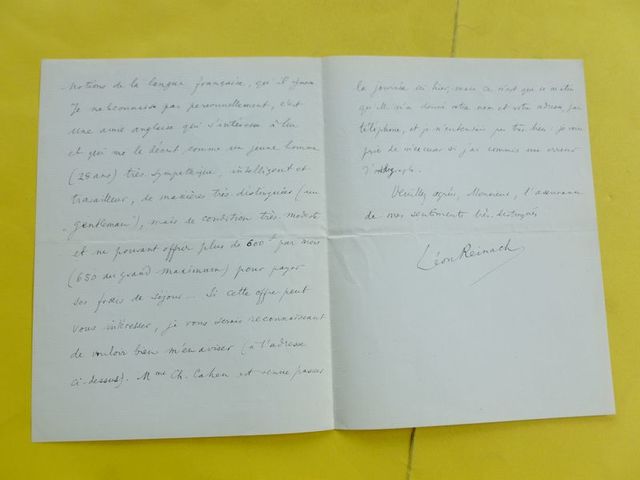 notions de la langue française, qu'il ignore
Je ne le connais pas personnellement, c'est
une amie anglaise qui s'intéresse à lui
et qui me le décrit comme un jeune homme
(25 ans) très sympathique, intelligent et
travailleur, de manières très distinguées (un
"gentleman"), mais de condition très modeste
et ne pouvant offrir plus de 600f par mois
(650 au grand maximum) pour payer
ses frais de séjour... Si cette offre peut
vous intéresser, je vous serais reconnaissant
de vouloir bien m'en aviser (à l'adresse
ci-dessus). Mme Ch. Cahen est venue passer
la journée ici hier, mais ce n'est que ce matin
qu'elle m'a donné votre nom et votre adresse, par
téléphone, et je n'entendais pas très bien; je vous
prie de m'excuser si j'ai commis une erreur
d'orthographe.
Veuillez agréer, Monsieur, l'assurance
de mes sentiments très distingués
Léon Reinach